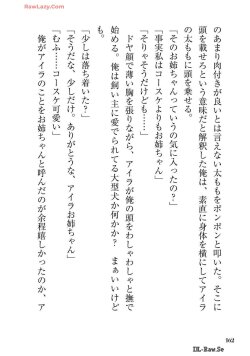 Raw-Lazy.Com
のあまり肉付きが良いとは言えない太ももをポンポンと叩いた。そこに
頭を載せろという意味だと解釈した俺は、素直に身体を横にしてアイラ
の太ももに頭を乗せる。
「そのお姉ちゃんっていうの気に入ったの？」
「事実私はコースケよりもお姉ちゃん」
「そりゃそうだけども……」
ドヤ顔で薄い胸を張りながら、アイラが俺の頭をわしゃわしゃと撫で
始める。俺は飼い主に愛でられてる大型犬か何かか？　まぁいいけど
も。
「少しは落ち着いた？」
「少し、少しだけ。ありがとうな、アイラお姉ちゃん」
「むふ……コースケ可愛い」
俺がアイラのことをお姉ちゃんと呼んだのが余程嬉しかったのか、ア
162
DL-Raw.Se